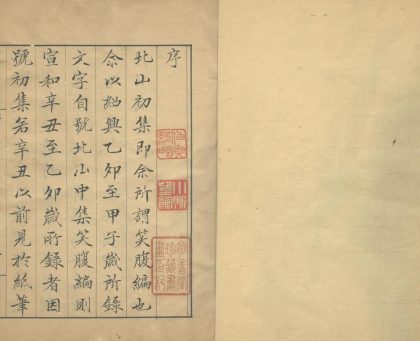 序
北山初集即余所謂笑腹編也
余以紹興乙卯至甲子歲所錄
文字自號北山中集笑腹編則
宣和辛丑至乙卯歲所錄者因
號初集若辛丑以前見於紙筆